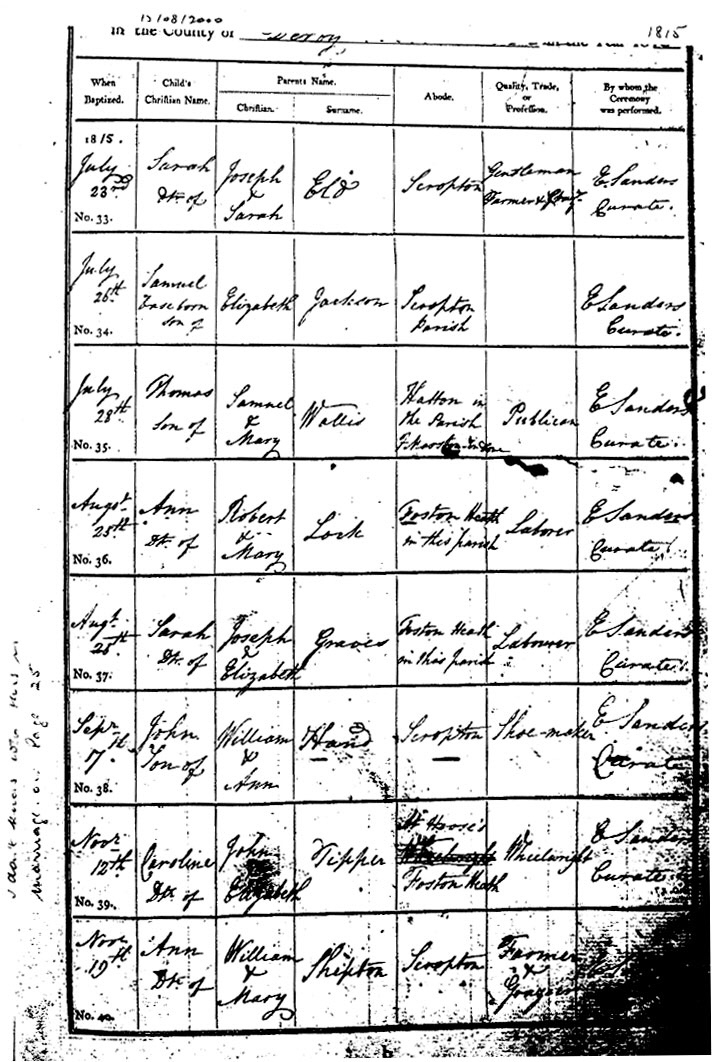 15/08/2000
1815
in the County of Derby in the Year 181
When Baptized.
Child's Christian Name.
Parents Name.
Christian.
Surname.
Abode.
Quality, Trade, or Profession.
By whom the Ceremony was performed.
1815.
July 23rd
No. 33.
Sarah Dtr. of
Joseph & Sarah
Eld
Scropton
Gentleman Farmer &
E Sanders Curate.
July 26th
No. 34.
Samuel Base born son of
Elizabeth
Jackson
Scropton Parish
E Sanders Curate.
July 28th
No. 35.
Thomas Son of
Samuel & Mary
Wallis
Hatton in the Parish
Publican
E Sanders Curate.
Augst 25th
No. 36.
Ann Dtr. of
Robert & Mary
Lock
Foston Heath in this parish
Laborer
E Sanders Curate.
Augt. 25th
No. 37.
Sarah Dtr. of
Joseph & Elizabeth
Graves
Foston Heath in this parish
Labourer
E Sanders Curate.
Sepr 7th
No. 38.
John Son of
William & Ann
Hand
Scropton
Shoe-maker
E Sanders Curate
Novr 12th
No. 39.
Caroline Dtr. of
John & Elizabeth
Tipper
At Foston Heath
Wheelwright
E Sanders Curate
Novr 19th
No. 40.
Ann Dtr. of
William & Mary
Shipton
Scropton
Farmer & Grazier
marriage on Page 25